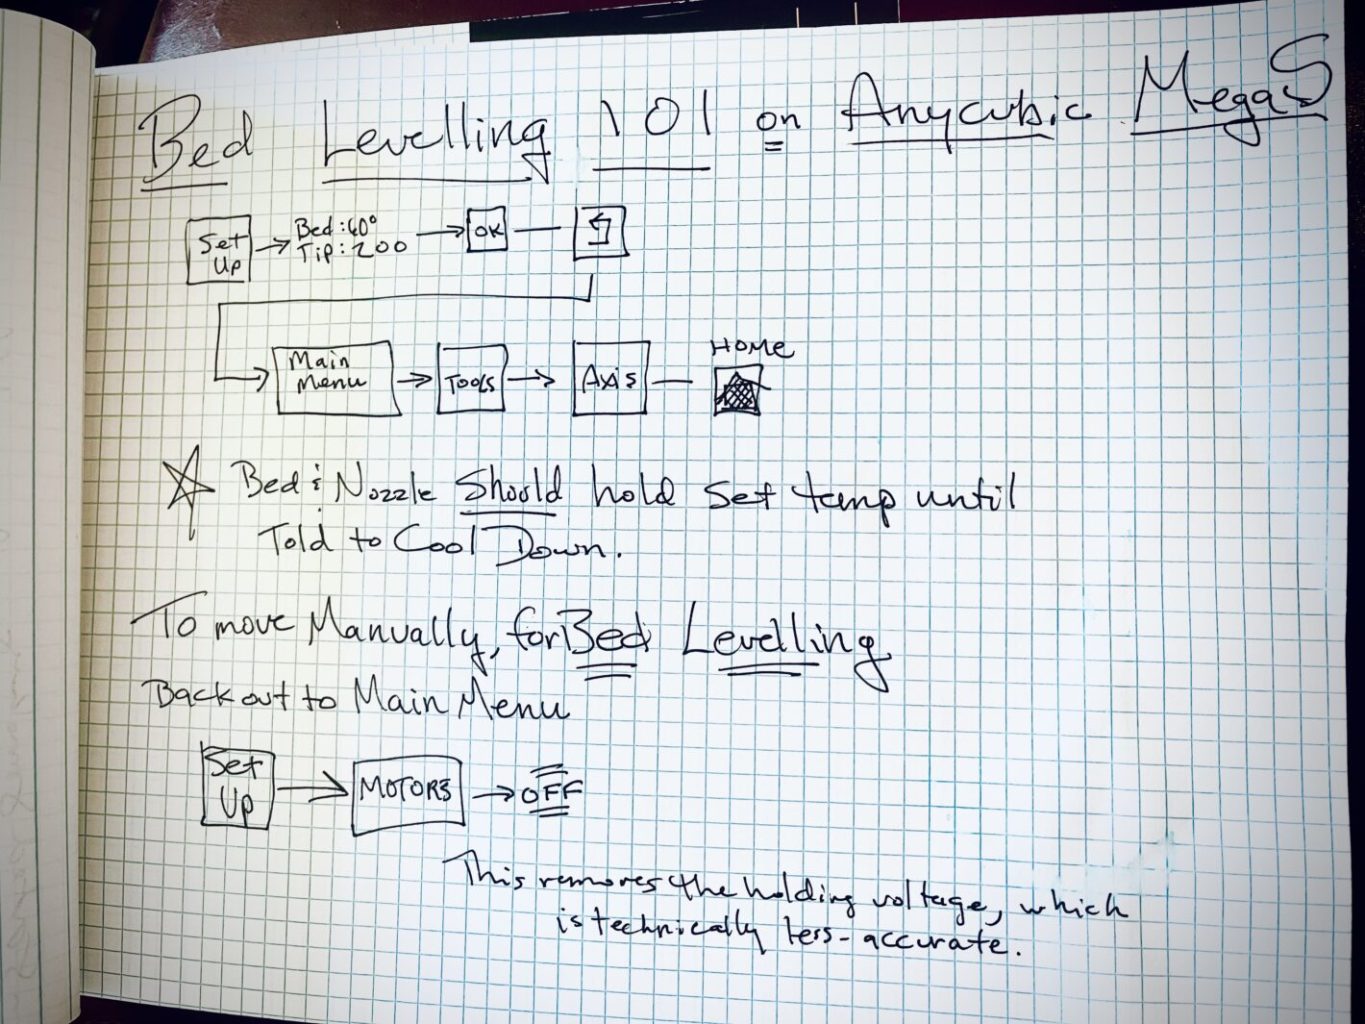 Bed Levelling 101 on Anycubic MegaS
Set Up → Bed: 60° Tip: 200 → OK
Main Menu → Tools → Axis HOME
Bed & Nozzle Should hold set temp until
Told to Cool Down.
To move Manually, for Bed Levelling
Back out to Main Menu
Set Up → MOTORS → OFF
This removes the holding voltage, which
is technically less-accurate.